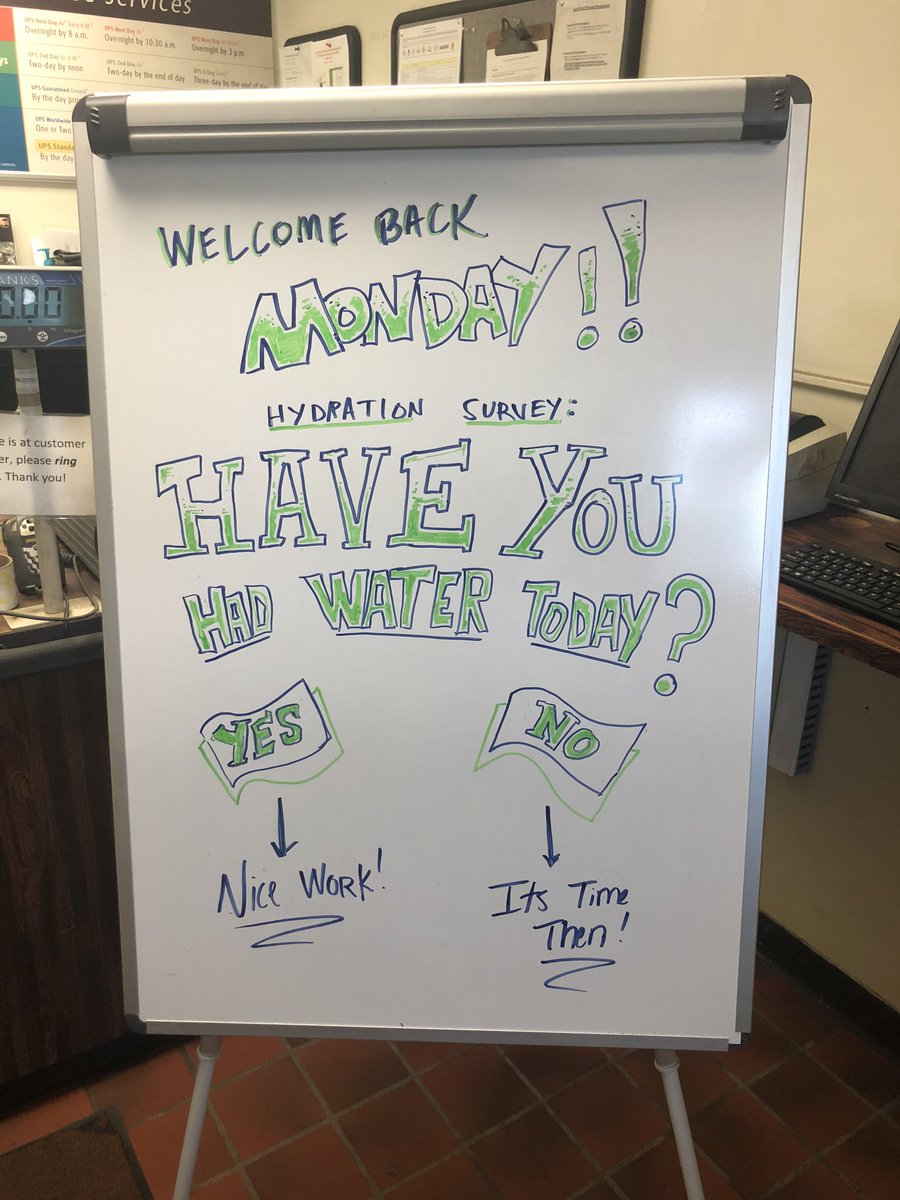 services
UPS Next Day Air® Early A.M.®
Overnight by 8 a.m.
UPS Next Day Air®
Overnight by 10:30 a.m.
UPS Next Day Air Saver®
Overnight by 3 p.m.
UPS 2nd Day Air A.M.®
Two-day by noon
UPS 2nd Day Air®
Two-day by the end of day
UPS 3 Day Select®
Three-day by the end of
UPS Guaranteed Ground
By the day
UPS Worldwide
One or Two
UPS Standa
By the day
0.00
e is at customer
er, please ring
. Thank you!
WELCOME BACK
MONDAY!!
HYDRATION SURVEY:
HAVE YOU
HAD WATER TODAY?
YES
NO
NICE WORK!
ITS TIME
THEN!